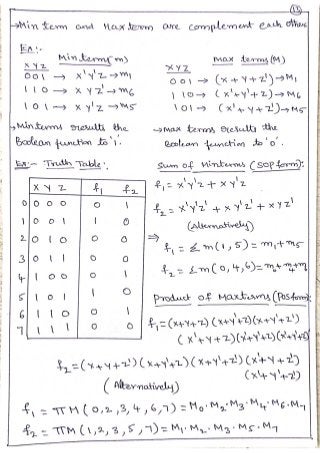 13
→ Min term and Max term are complement each other
Ex:-
Min terms(m)
x y z
0 0 1 → x'y'z → m1
1 1 0 → x y z' → m6
1 0 1 → x y'z → m5
→ Min terms results the
Boolean function to '1'.
max terms(M)
x y z
0 0 1 → (x + y + z') → M1
1 1 0 → (x'+y'+z) → M6
1 0 1 → (x'+y+z') → M5
→ Max terms results the
Boolean function to '0'.
Ex:- Truth Table:
x y z f1 f2
0 0 0 0 0 1
1 0 0 1 1 0
2 0 1 0 0 0
3 0 1 1 0 0
4 1 0 0 0 1
5 1 0 1 1 0
6 1 1 0 0 1
7 1 1 1 0 0
⇒
Sum of Minterms (SOP form):
f1 = x'y'z + x y'z
f2 = x'y'z' + x y'z' + x y z'
(Alternatively)
f1 = Σm(1,5) = m1+m5
f2 = Σm(0,4,6) = m0+m4+m6
Product of Maxterms (Pos form):
f1 = (x+y+z)(x+y'+z)(x+y'+z')
(x'+y+z)(x'+y'+z)(x'+y'+z')
f2 = (x+y+z')(x+y'+z)(x+y'+z')(x'+y+z')
(x'+y'+z')
(Alternatively)
f1 = πM(0,2,3,4,6,7) = M0.M2.M3.M4.M6.M7
f2 = πM(1,2,3,5,7) = M1.M2.M3.M5.M7